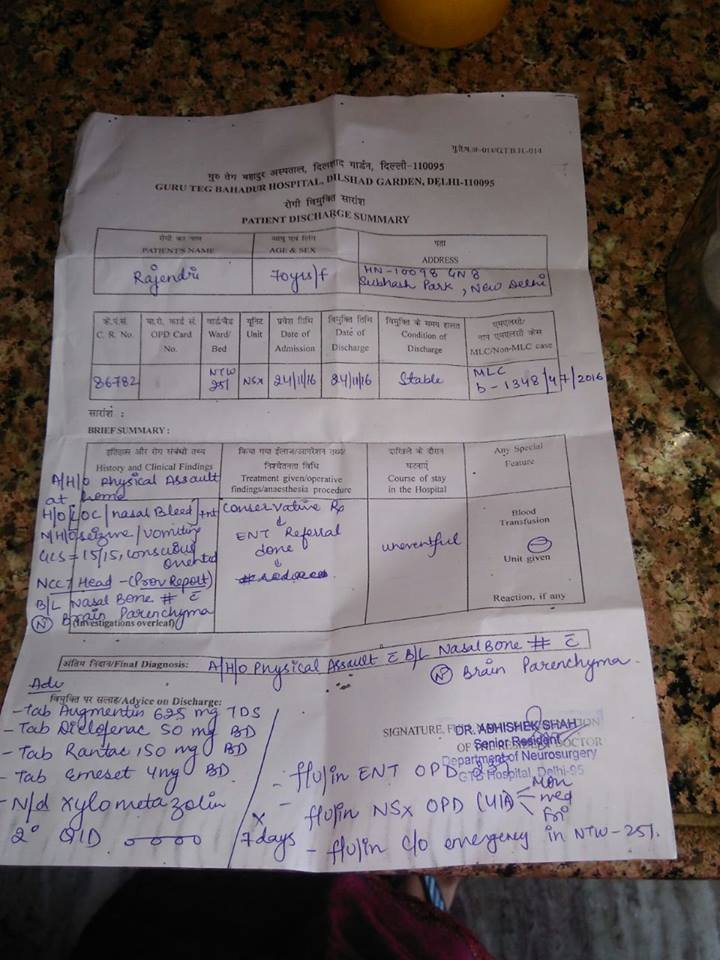 गु.ते.ब.अ-014/G.T.B.H.-014
गुरु तेग बहादुर अस्पताल, दिलशाद गार्डन, दिल्ली-110095
GURU TEG BAHADUR HOSPITAL, DILSHAD GARDEN, DELHI-110095
रोगी विमुक्ति सारांश
PATIENT DISCHARGE SUMMARY
रोगी का नाम
PATIENT'S NAME
Rajendri
आयु एवं लिंग
AGE & SEX
70yrs/f
पता
ADDRESS
HN-10098 GN 8
Subhash Park, New Delhi
के.पं.सं.
C. R. No.
86782
बा.रो. कार्ड सं.
OPD Card
No.
वार्ड/बैड
Ward/
Bed
NTW
251
यूनिट
Unit
NSx
प्रवेश तिथि
Date of
Admission
24/11/16
विमुक्ति तिथि
Date of
Discharge
24/11/16
विमुक्ति के समय हालत
Condition of
Discharge
Stable
एमएलसी/
नान एमएलसी केस
MLC/Non-MLC case
MLC
b-1348/47/2016
सारांश :
BRIEF SUMMARY :
इतिहास और रोग संबंधी तथ्य
History and Clinical Findings
A/H/O Physical Assault
at home
H/O LOC/nasal Bleed +nt
N/H/O seizure/vomiting
GCS = 15/15, conscious
oriented
NCCT Head -(Prov Report)
B/L Nasal Bone # c̄
(N) Brain Parenchyma
(Investigations overleaf)
किया गया ईलाज/आपरेशन तथ्य/
निश्चेतना विधि
Treatment given/operative
findings/anaesthesia procedure
Conservative Rx
↓
ENT Referral
done
दाखिले के दौरान
घटनाएं
Course of stay
in the Hospital
uneventful
Any Special
Feature
Blood
Transfusion
Unit given
Reaction, if any
अंतिम निदान/Final Diagnosis: A/H/O Physical Assault c̄ B/L Nasal Bone # c̄
(N) Brain Parenchyma.
Adv
विमुक्ति पर सलाह/Advice on Discharge:
- Tab Augmentin 625 mg TDS
- Tab Diclofenac 50 mg BD
- Tab Rantac 150 mg BD
- Tab Emeset 4mg BD
- N/d Xylometazolin
2° QID
x
7 days
SIGNATURE,
DR. ABHISHEK SHAH
Senior Resident
DOCTOR
Department of Neurosurgery
GTB Hospital, Delhi-95
- f/u/in ENT OPD
- f/u/in NSx OPD (416) Mon
wed
Fri
- f/u/in c/o emergency in NTW-251.